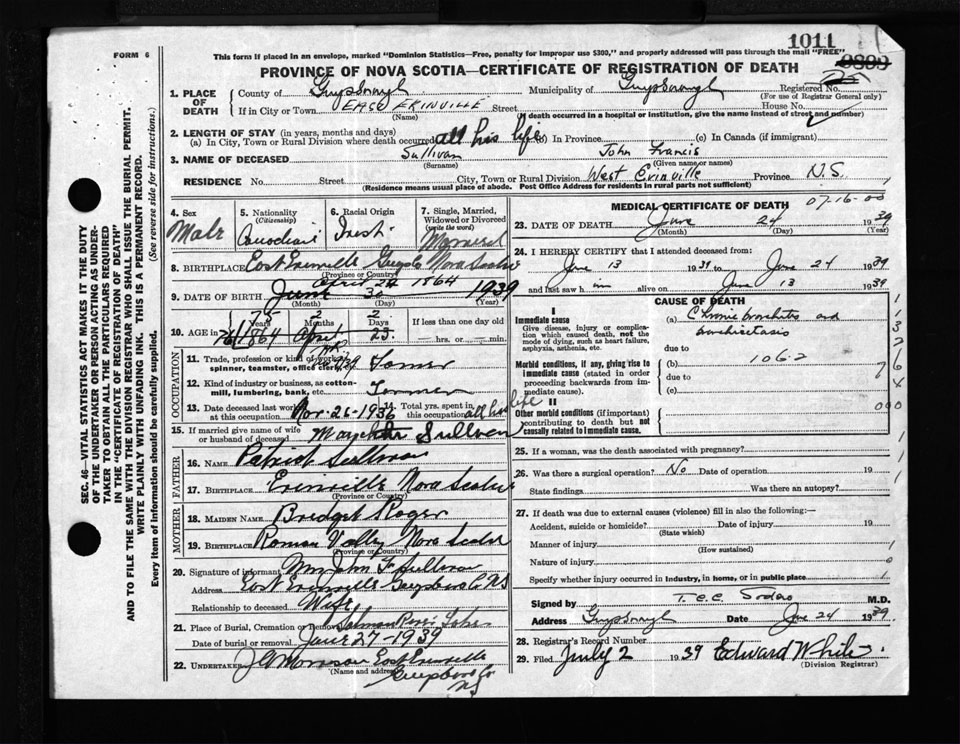 1011
FORM 6
This form if placed in an envelope, marked "Dominion Statistics—Free, penalty for improper use $300," and properly addressed will pass through the mail "FREE"
PROVINCE OF NOVA SCOTIA—CERTIFICATE OF REGISTRATION OF DEATH
1. PLACE OF DEATH
County of Guysborough Municipality of Guysborough Registered No.
(For use of Registrar General only)
If in City or Town EAST ERINVILLE Street House No.
(Name) (If death occurred in a hospital or institution, give the name instead of street and number)
2. LENGTH OF STAY (in years, months and days)
(a) In City, Town or Rural Division where death occurred all his life (b) In Province (c) In Canada (if immigrant)
3. NAME OF DECEASED Sullivan John Francis
(Surname) (Given name or names)
RESIDENCE No. Street City, Town or Rural Division West Erinville Province N.S.
(Residence means usual place of abode. Post Office Address for residents in rural parts not sufficient)
4. Sex Male
5. Nationality (Citizenship) Canadian
6. Racial Origin Irish
7. Single, Married, Widowed or Divorced (write the word) Married
8. BIRTHPLACE East Erinville Guysboro Nova Scotia
(Province or Country)
April 24 1864
9. DATE OF BIRTH June 30 1939
(Month) (Day) (Year)
75 2 2
10. AGE in Years Months Days If less than one day old
1864 April 23 hrs. or min.
11. Trade, profession or kind of work as spinner, teamster, office clerk, etc. Farmer
12. Kind of industry or business, as cotton-mill, lumbering, bank, etc. Farmer
13. Date deceased last worked at this occupation Nov. 26-1936 Total yrs. spent in this occupation all his life
OCCUPATION
15. If married give name of wife or husband of deceased Sullivan
FATHER
16. NAME Patrick Sullivan
17. BIRTHPLACE Erinville Nova Scotia
(Province or Country)
MOTHER
18. MAIDEN NAME Bridget Roger
19. BIRTHPLACE Roman Valley Nova Scotia
(Province or Country)
20. Signature of informant Mrs John F Sullivan
Address East Erinville Guysboro Co NS
Relationship to deceased Wife
21. Place of Burial, Cremation or Removal Salmon River Lake
Date of burial or removal June 27-1939
22. UNDERTAKER J G Morrison East Erinville
(Name and address) Guysboro Co
NS
MEDICAL CERTIFICATE OF DEATH 07-16-00
23. DATE OF DEATH June 24 1939
(Month) (Day) (Year)
24. I HEREBY CERTIFY that I attended deceased from
June 13 1939 to June 24 1939
and last saw him alive on June 13 1939
CAUSE OF DEATH
I
Immediate cause
Give disease, injury or complication which caused death, not the mode of dying, such as heart failure, asphyxia, asthenia, etc.
(a) Chronic bronchitis and
bronchiectasis
due to
Morbid conditions, if any, giving rise to immediate cause (stated in order proceeding backwards from immediate cause).
(b) 106.2
due to
(c)
II
Other morbid conditions (if important) contributing to death but not causally related to immediate cause.
25. If a woman, was the death associated with pregnancy?
26. Was there a surgical operation? No Date of operation 19
State findings Was there an autopsy?
27. If death was due to external causes (violence) fill in also the following:—
Accident, suicide or homicide? Date of injury 19
(State which)
Manner of injury
(How sustained)
Nature of injury
Specify whether injury occurred in industry, in home, or in public place
Signed by M.D.
Address Guysborough Date June 24 1939
28. Registrar's Record Number
29. Filed July 2 1939 Edward White
(Division Registrar)
SEC. 46—VITAL STATISTICS ACT MAKES IT THE DUTY
OF THE UNDERTAKER OR PERSON ACTING AS UNDERTAKER TO OBTAIN ALL THE PARTICULARS REQUIRED
IN THE "CERTIFICATE OF REGISTRATION OF DEATH"
AND TO FILE THE SAME WITH THE DIVISION REGISTRAR WHO SHALL ISSUE THE BURIAL PERMIT.
WRITE PLAINLY WITH UNFADING INK. THIS IS A PERMANENT RECORD.
Every item of information should be carefully supplied. (See reverse side for instructions.)